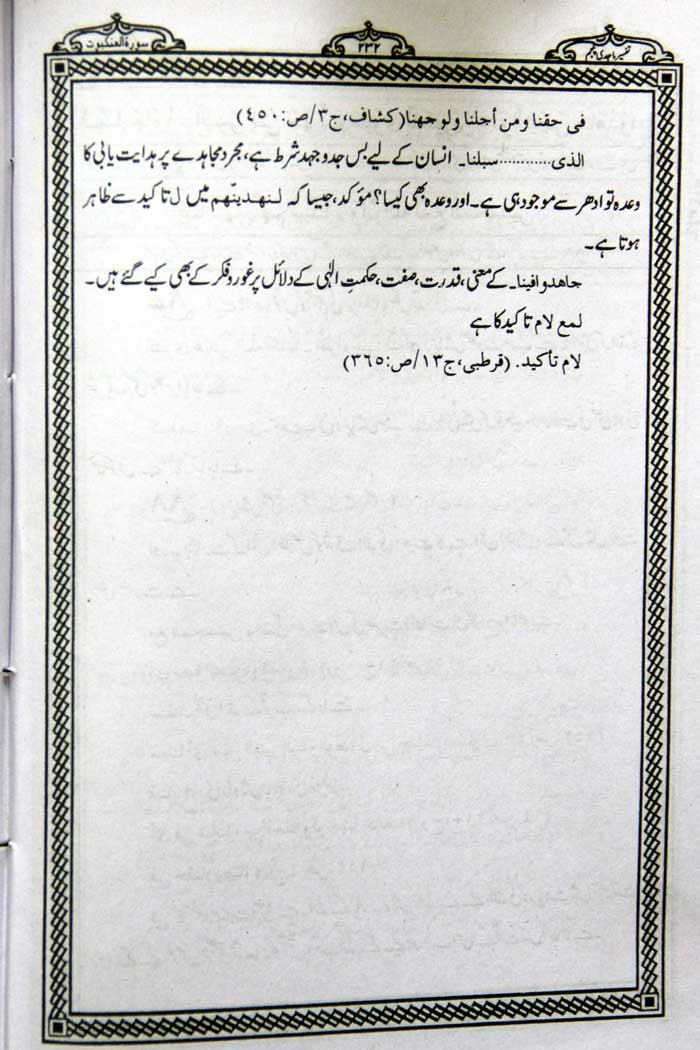 تفسیر ماجدی پنجم
۲۳۲
سورة العنکبوت
فی حقنا ومن أجلنا ولوجهنا (کشاف، ج۳/ص:۴۵۰)
الذی............سبلنا۔ انسان کے لیے بس جدوجہد شرط ہے، مجرد مجاہدے پر ہدایت یابی کا
وعدہ تو ادھر سے موجود ہی ہے۔ اور وعدہ بھی کیسا؟ مؤکد، جیسا کہ لنهدینّهم میں ل تاکید سے ظاہر
ہوتا ہے۔
جاهدوا فینا۔ کے معنی، قدرت، صفت، حکمت الٰہی کے دلائل پر غور و فکر کے بھی کیے گئے ہیں۔
لمع لام تاکید کا ہے
لام تأکید. (قرطبی، ج۱۳/ص:۳۶۵)